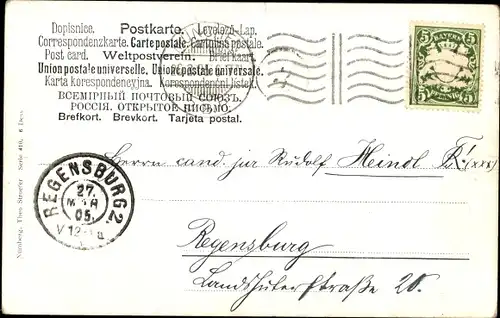 Dopisnice. Postkarte. Levelező-Lap.
Correspondenzkarte. Carte postale. Cartolina postale.
Post card. Weltpostverein. Briefkaart
Union postale universelle. Unione postale universale.
Karta korespondencyjna. Korespondenční lístek.
ВСЕМІРНЫЙ ПОЧТОВЫЙ СОЮЗЪ.
РОССІЯ. ОТКРЫТОЕ ПИСЬМО.
Brefkort. Brevkort. Tarjeta postal.
5 BAYERN 5
5 5
Herrn cand. jur Rudolf Heindl K! (xxx)
REGENSBURG 2
27.
MAR
05.
Regensburg
Landshuterstraße 20.
Nürnberg. Theo Stroefer Serie 410. 6 Dess